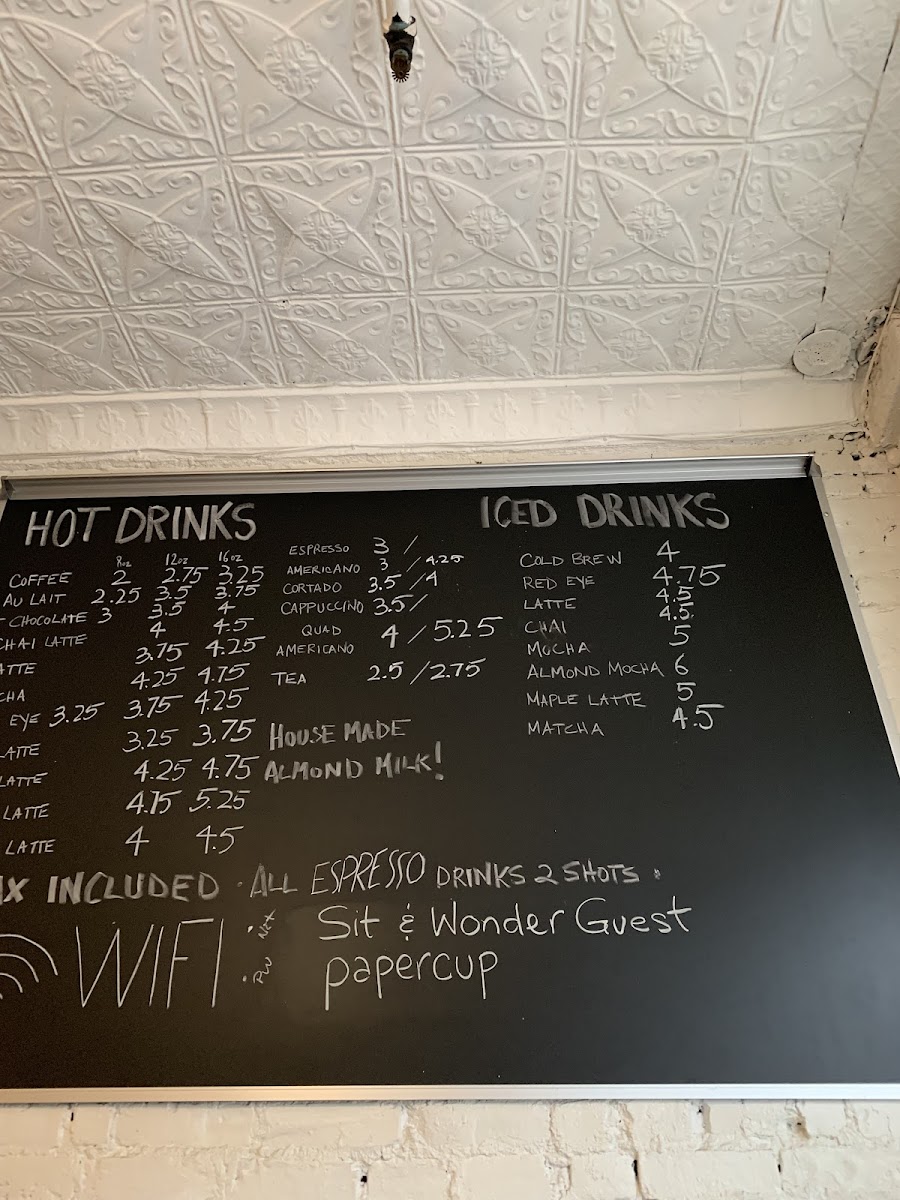 HOT DRINKS
8oz 12oz 16oz
COFFEE 2 2.75 3.25
AU LAIT 2.25 3.5 3.75
CHOCOLATE 3 3.5 4
CHAI LATTE 4 4.5
ATTE 3.75 4.25
CHA 4.25 4.75
EYE 3.25 3.75 4.25
LATTE 3.25 3.75
LATTE 4.25 4.75
LATTE 4.75 5.25
LATTE 4 4.5
ESPRESSO 3 /
AMERICANO 3 / 4.25
CORTADO 3.5 / 4
CAPPUCCINO 3.5 /
QUAD
AMERICANO 4 / 5.25
TEA 2.5 / 2.75
HOUSE MADE
ALMOND MILK!
ICED DRINKS
COLD BREW 4
RED EYE 4.75
LATTE 4.5
CHAI 4.5
MOCHA 5
ALMOND MOCHA 6
MAPLE LATTE 5
MATCHA 4.5
AX INCLUDED · ALL ESPRESSO DRINKS 2 SHOTS ·
WIFI · NET Sit & Wonder Guest
· PW papercup